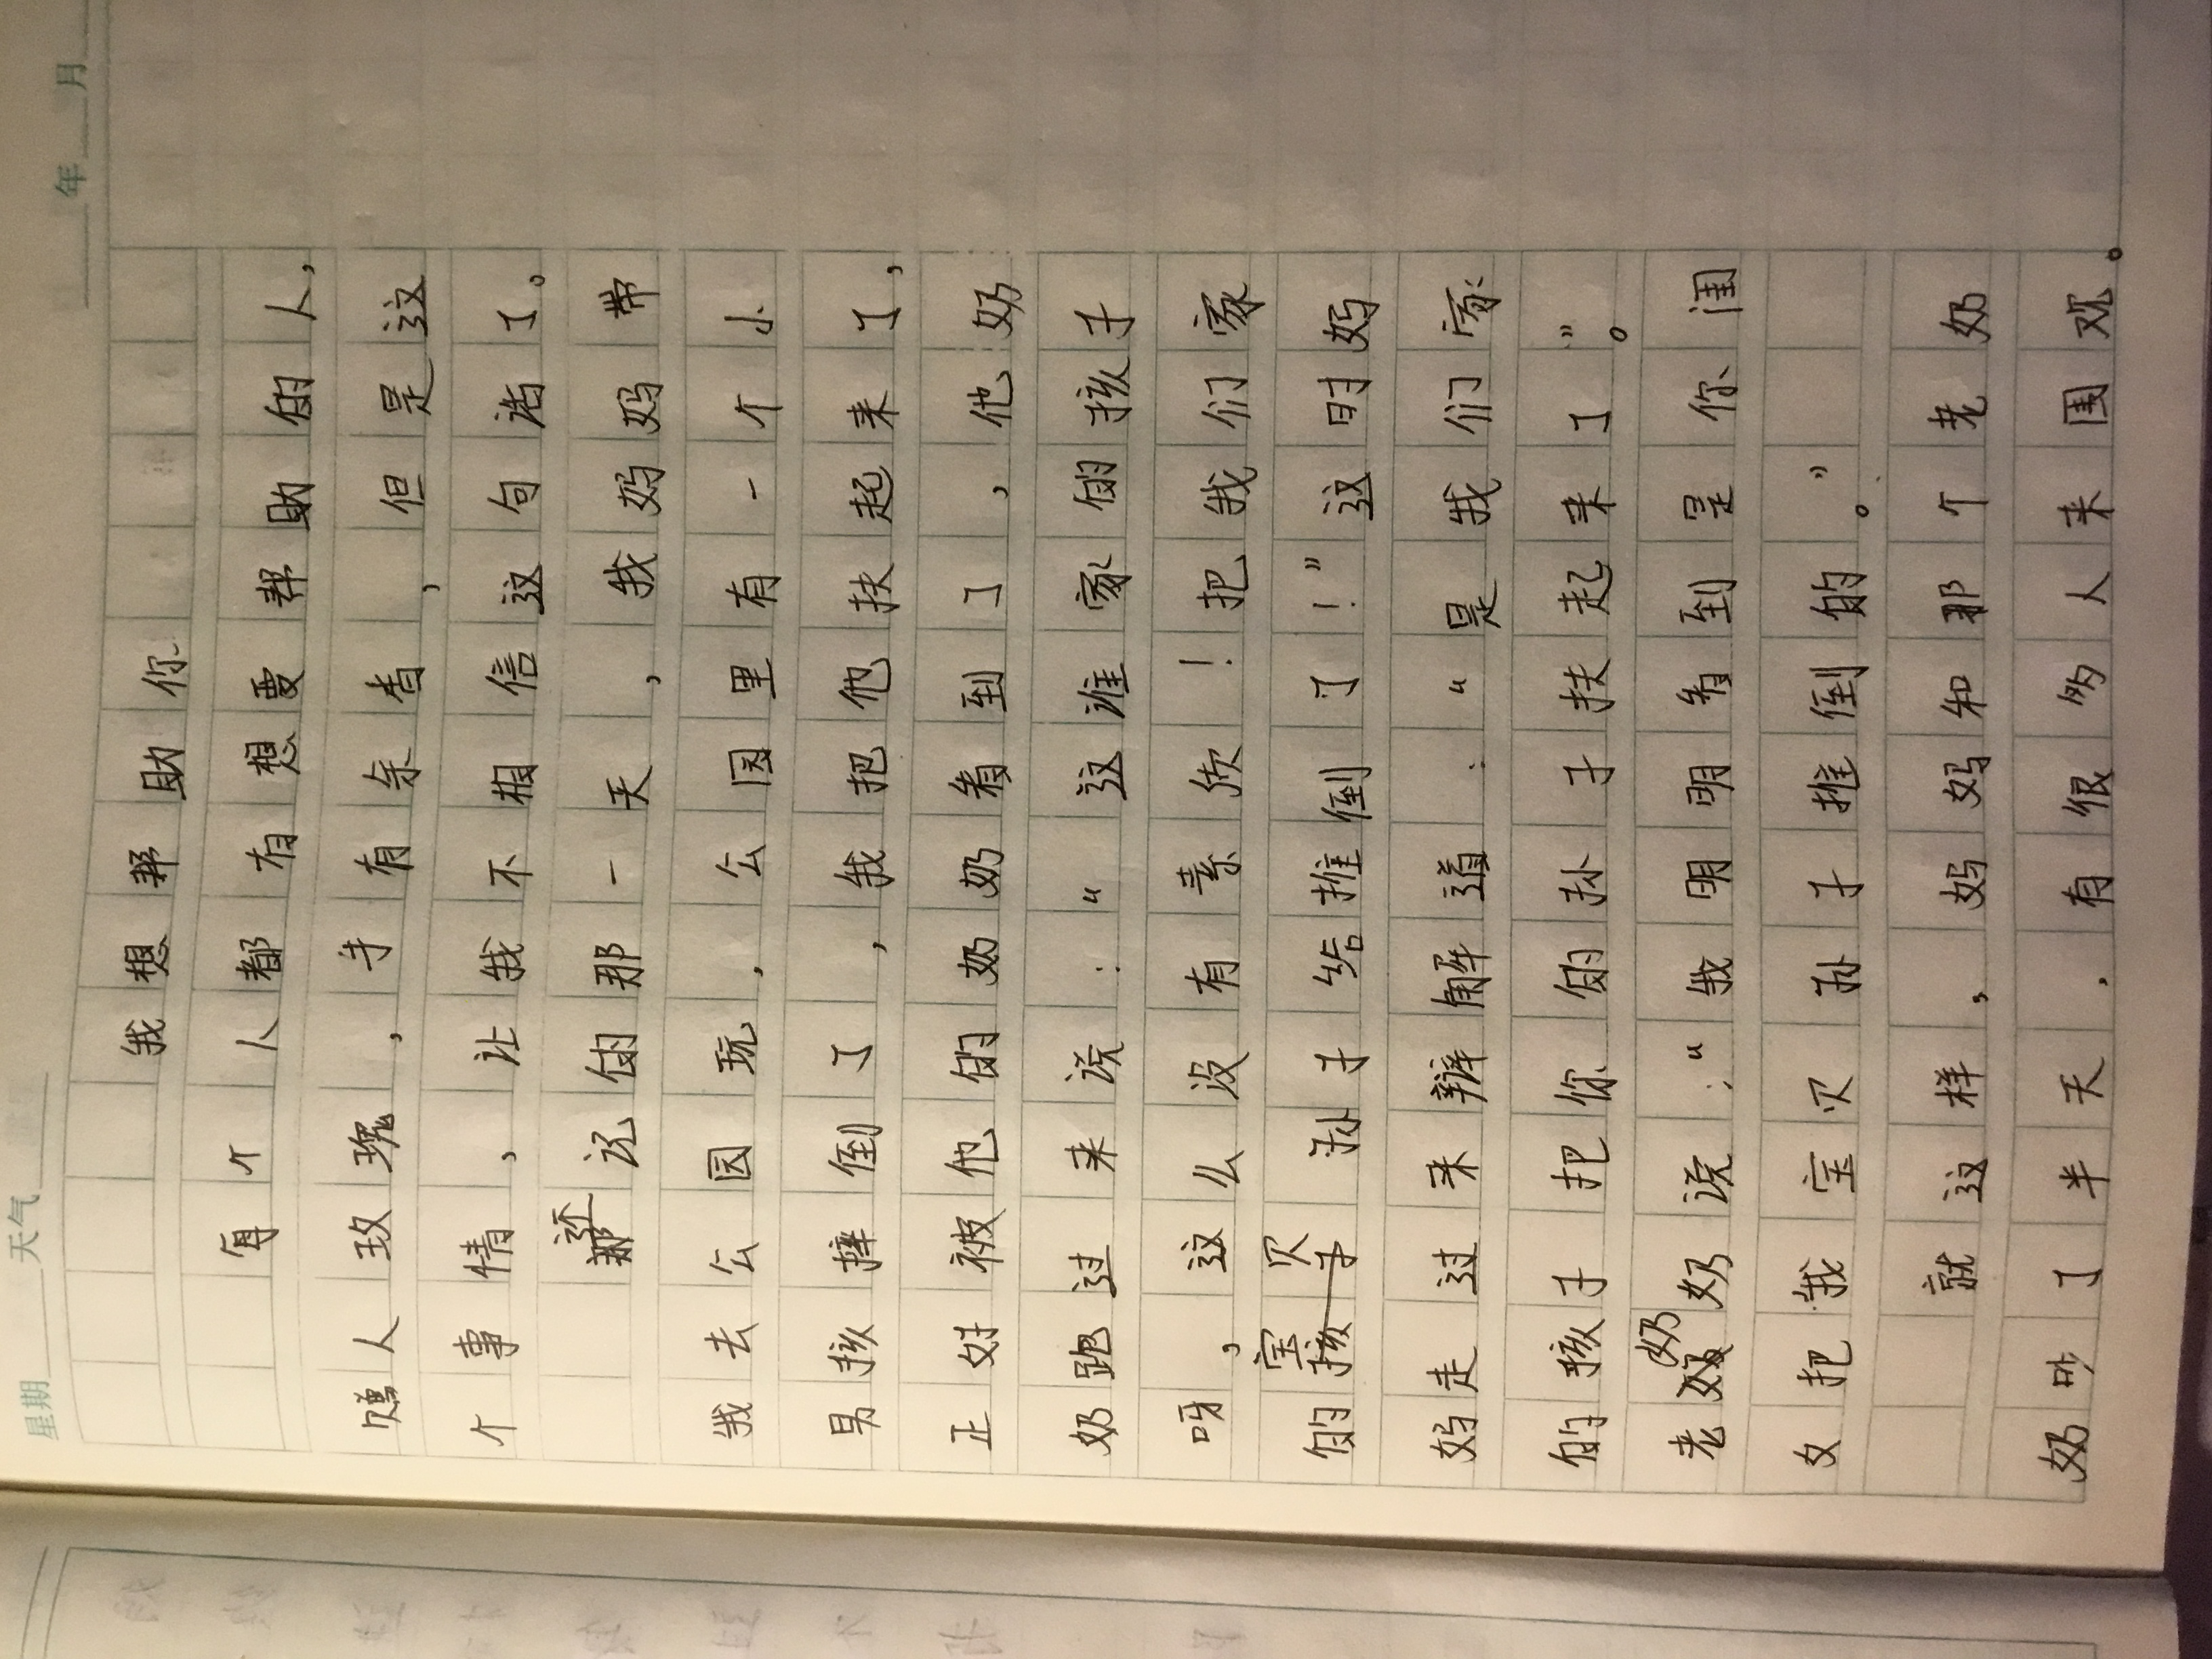 星期 天气 年 月
我想帮助你
每个人都有想要帮助的人，
赠人玫瑰，手有余香，但是这
个事情，让我不相信这句话了。
还记的那一天，我妈妈带
我去公园玩，公园里有一个小
男孩摔倒了，我把他扶起来了，
正好被他的奶奶看到了，他奶
奶跑过来说：“这谁家的孩子
呀，这么没有素质！把我们家
的宝贝孙子给推倒了！”这时妈
妈走过来辩解道：“是我们家
的孩子把你的孙子扶起来了”。
老奶奶说：“我明明看到是你闺
女把我宝贝孙子推倒的。”
就这样，妈妈和那个老奶
奶吵了半天，有很多人来围观。